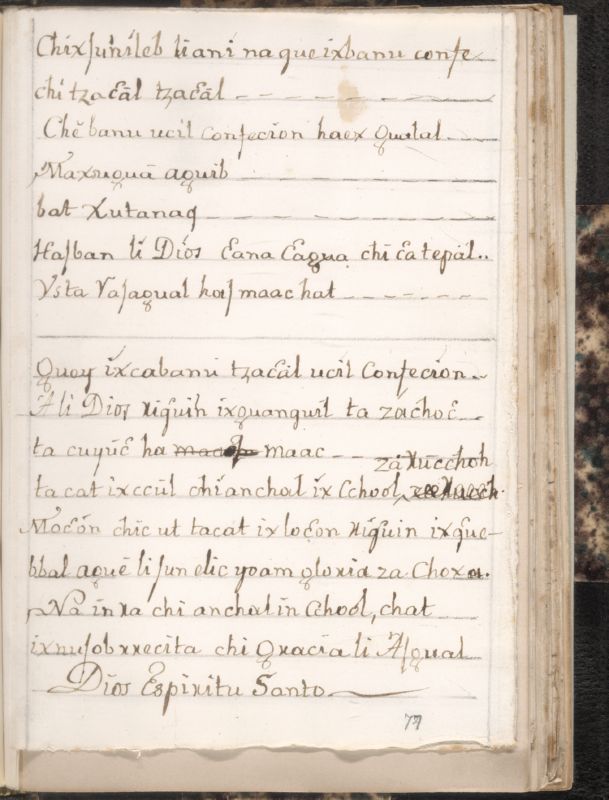 Chixſúnileb li ani na que ixbanu confe
chi tzaɛ̃al tzaɛ̃al
Chē banu ucil Confecion haex gualal
Maxuguā aguib
bat Xutanaq
Haſban li Dios ɛana ɛagua chi ɛatepál..
Ysta Vaſagual haſ maac hat
Quoy ixcabanu tzaɛal ucil Confecion
Ali Dios xiguih ixguanguil ta zachoɛ
ta cuyūɛ ha maac
zaxúcchoh
ta cat ixccūl chi anchal ix Cchool,
Moɛón chic ut tacat ix loɛon xiguin ixque-
bbal aguē li ſun elic yoam gloria za Choxa.
Na in ra chi anchal in Cchool, chat
ixnuſob rrecita chi Gracia li Aſgual
Dios Espiritu Santo
77